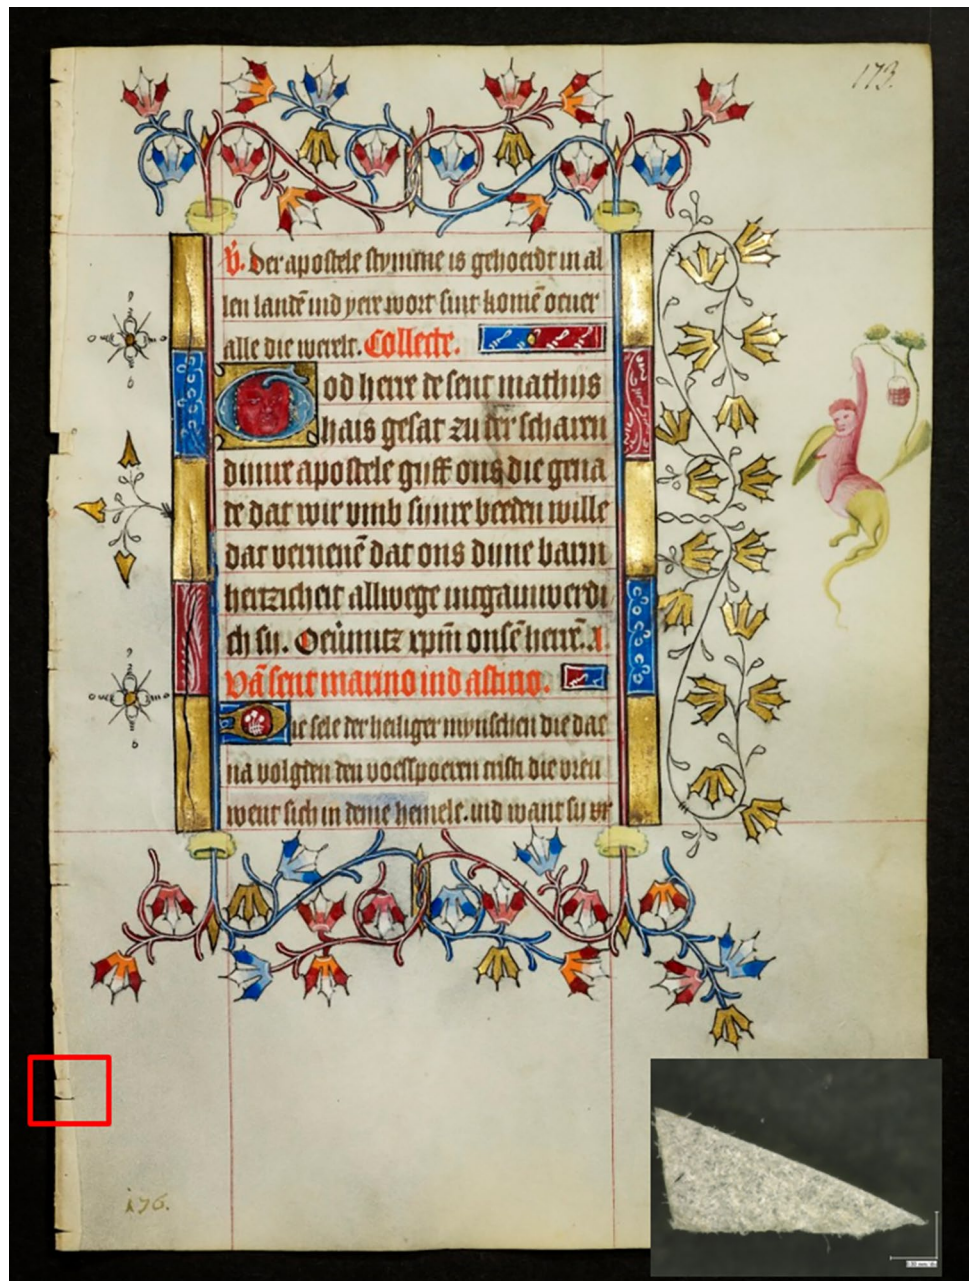 173.
v̓. Der apostele stymme is gehoerdt in al
len landē ind yere wort sint komē oeuer
alle die werelt. Collecte.
God herre de sent mathus
hais gesat zu der scharen
dinre apostele gyff ons die gena
de dat wir vmb sinre beeden wille
dat vernenē dat ons dyne barm
hertzicheit allwege intgainwerdi
ch sy. Oeuimitz xpm̄ onsē herrē. A
Vā sent marino ind astino.
Die sele der heiliger mynschen die dae
na volgden den voesspoeren cristi die vreu
went sich in deme hemele. ind want sy vr
176.